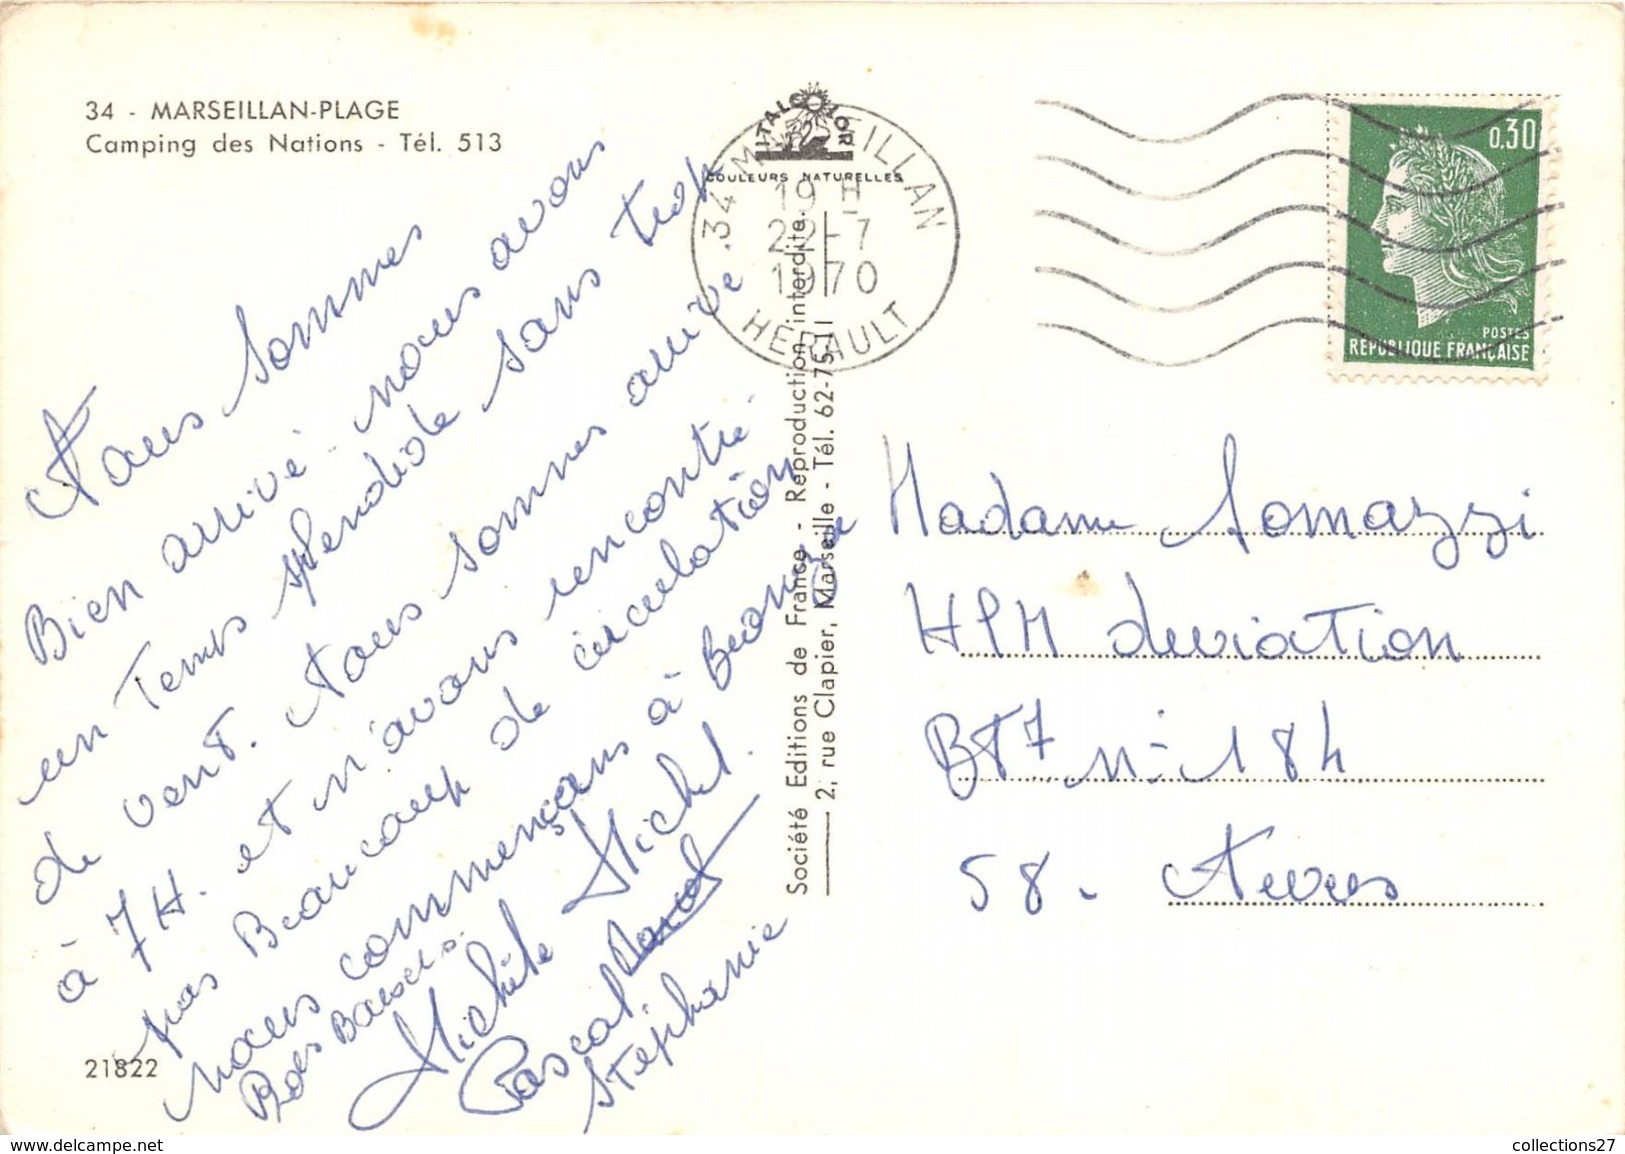 34 - MARSEILLAN-PLAGE
Camping des Nations - Tél. 513
Nous sommes
Bien arrivé. nous avons
un Temps splendide sans trop
de vent. Nous sommes arrivé
à 7H. et n'avons rencontré
pas Beaucoup de circulation
nous commençons à Bronzer
Bons Baisers.
Michèle Michel.
Pascal
Stéphanie
21822
ITALCOLOR
COULEURS NATURELLES
34 MARSEILLAN
19 H
22-7
1970
HERAULT
Société Editions de France - Reproduction interdite.
2, rue Clapier, Marseille - Tél. 62-75-11
0,30
POSTES
RÉPUBLIQUE FRANÇAISE
Madame Somazzi
HLM deviation
BT7 n° 184
58. Nevers
collections27